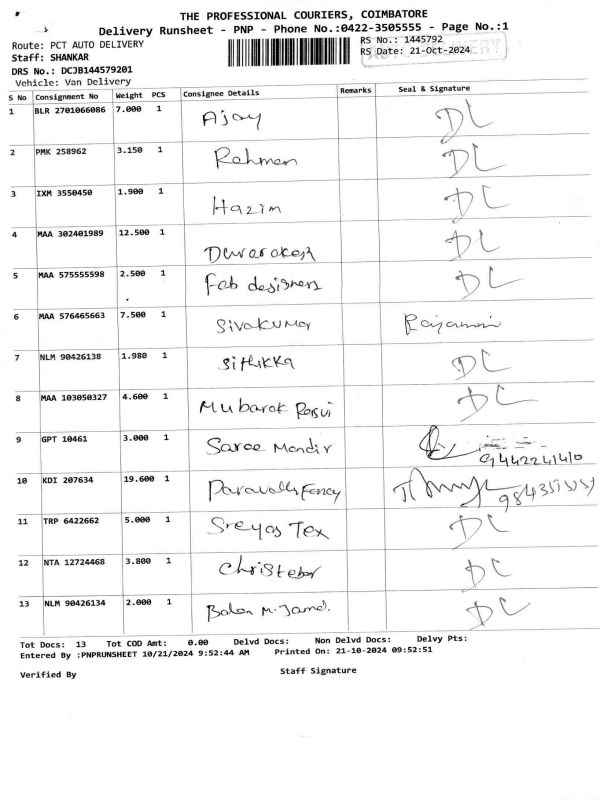 THE PROFESSIONAL COURIERS, COIMBATORE
Delivery Runsheet - PNP - Phone No.:0422-3505555 - Page No.:1
Route: PCT AUTO DELIVERY
RS No.: 1445792
Staff: SHANKAR
RS Date: 21-Oct-2024
DRS No.: DCJB144579201
Vehicle: Van Delivery
S No Consignment No Weight PCS Consignee Details Remarks Seal & Signature
1 BLR 2701066086 7.000 1 Ajay DL
2 PMK 258962 3.150 1 Rahman DL
3 IXM 3550450 1.900 1 Hazim DL
4 MAA 302401989 12.500 1 DL
5 MAA 575555598 2.500 1 Fab designers DL
6 MAA 576465663 7.500 1 Sivakumar
7 NLM 90426138 1.980 1 Sithikka DL
8 MAA 103050327 4.600 1 Mubarak DL
9 GPT 10461 3.000 1 Saree Mandir
10 KDI 207634 19.600 1 Fancy
11 TRP 6422662 5.000 1 Sreyas Tex DL
12 NTA 12724468 3.800 1 DL
13 NLM 90426134 2.000 1 DL
Tot Docs: 13 Tot COD Amt: 0.00 Delvd Docs: Non Delvd Docs: Delvy Pts:
Entered By :PNPRUNSHEET 10/21/2024 9:52:44 AM Printed On: 21-10-2024 09:52:51
Verified By
Staff Signature